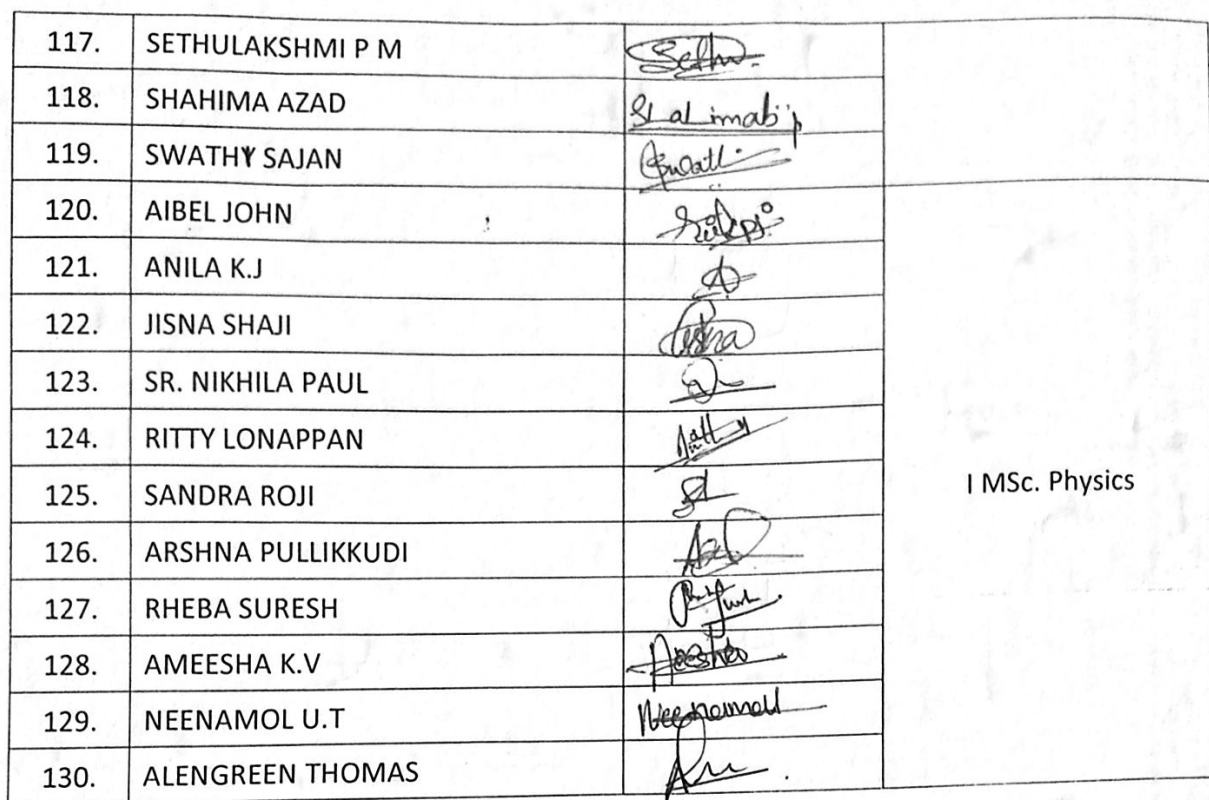 117. SETHULAKSHMI P M Sethu
118. SHAHIMA AZAD
119. SWATHY SAJAN Swathi
120. AIBEL JOHN
121. ANILA K.J
122. JISNA SHAJI Jisna
123. SR. NIKHILA PAUL
124. RITTY LONAPPAN
125. SANDRA ROJI
I MSc. Physics
126. ARSHNA PULLIKKUDI
127. RHEBA SURESH
128. AMEESHA K.V
129. NEENAMOL U.T Neenamol
130. ALENGREEN THOMAS